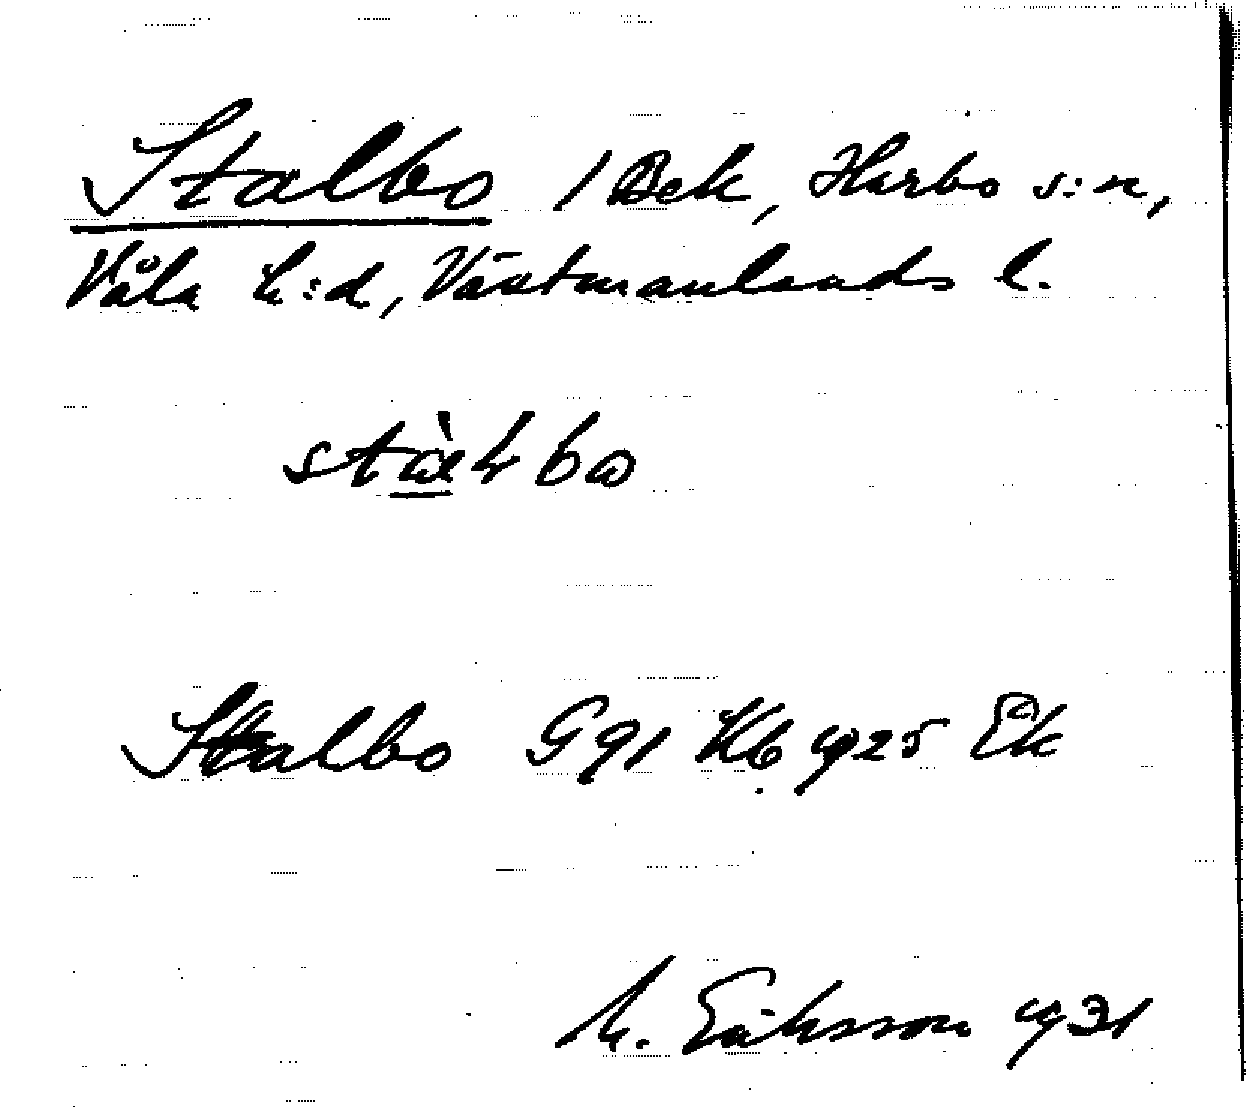 Stalbo 1 Bek, Harbo s:n,
Våla h:d, Västmanlands l.
Stalbo G 91 Kb 1925 Ek
M. Eriksson 1931